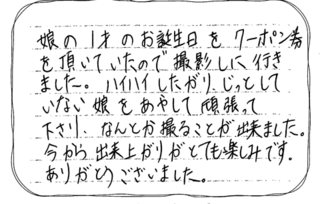 娘の1才のお誕生日をクーポン券
を頂いていたので撮影しに行き
ました。ハイハイしたがり、じっとして
いない娘をあやして頑張って
下さり、なんとか撮ることが出来ました。
今から出来上がりがとても楽しみです。
ありがとうございました。